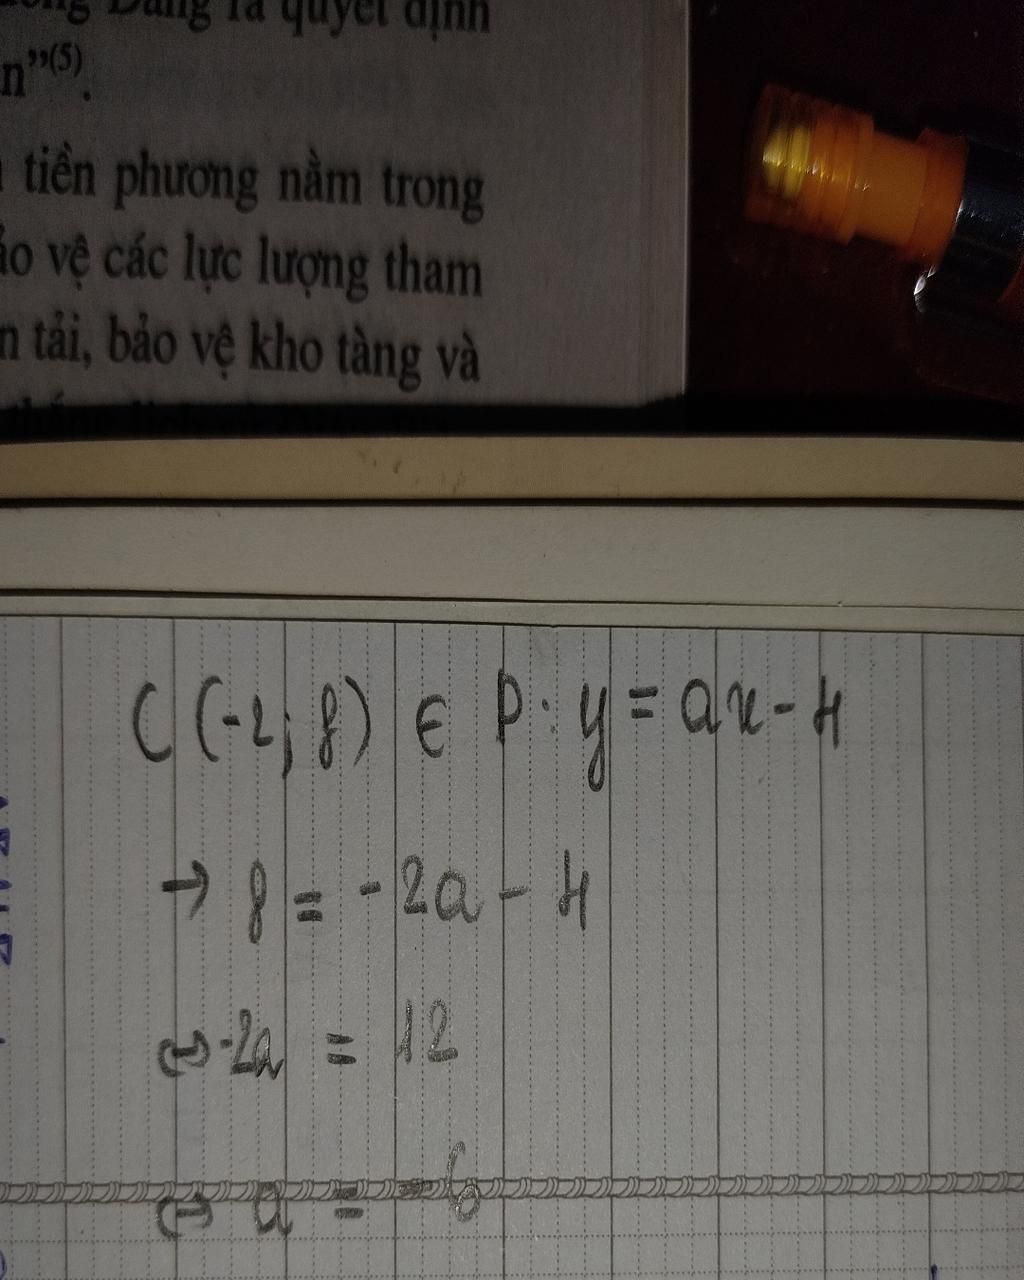 Đảng ra quyết định
n”(5).
tiền phương nằm trong
vệ các lực lượng tham
tải, bảo vệ kho tàng và
C (-2; 8) ∈ P: y = ax - 4
→ 8 = -2a - 4
⇔ -2a = 12
⇔ a = -6